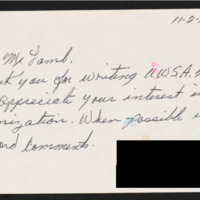 11-2-
Mr Lamb,
you for writing AWSA.
appreciate your interest in
nization. When possible
ord comments.